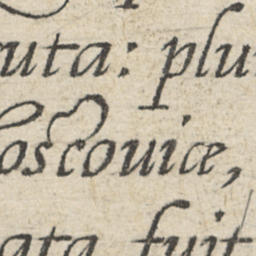 uta: plu
oscouiæ,
ata fuit